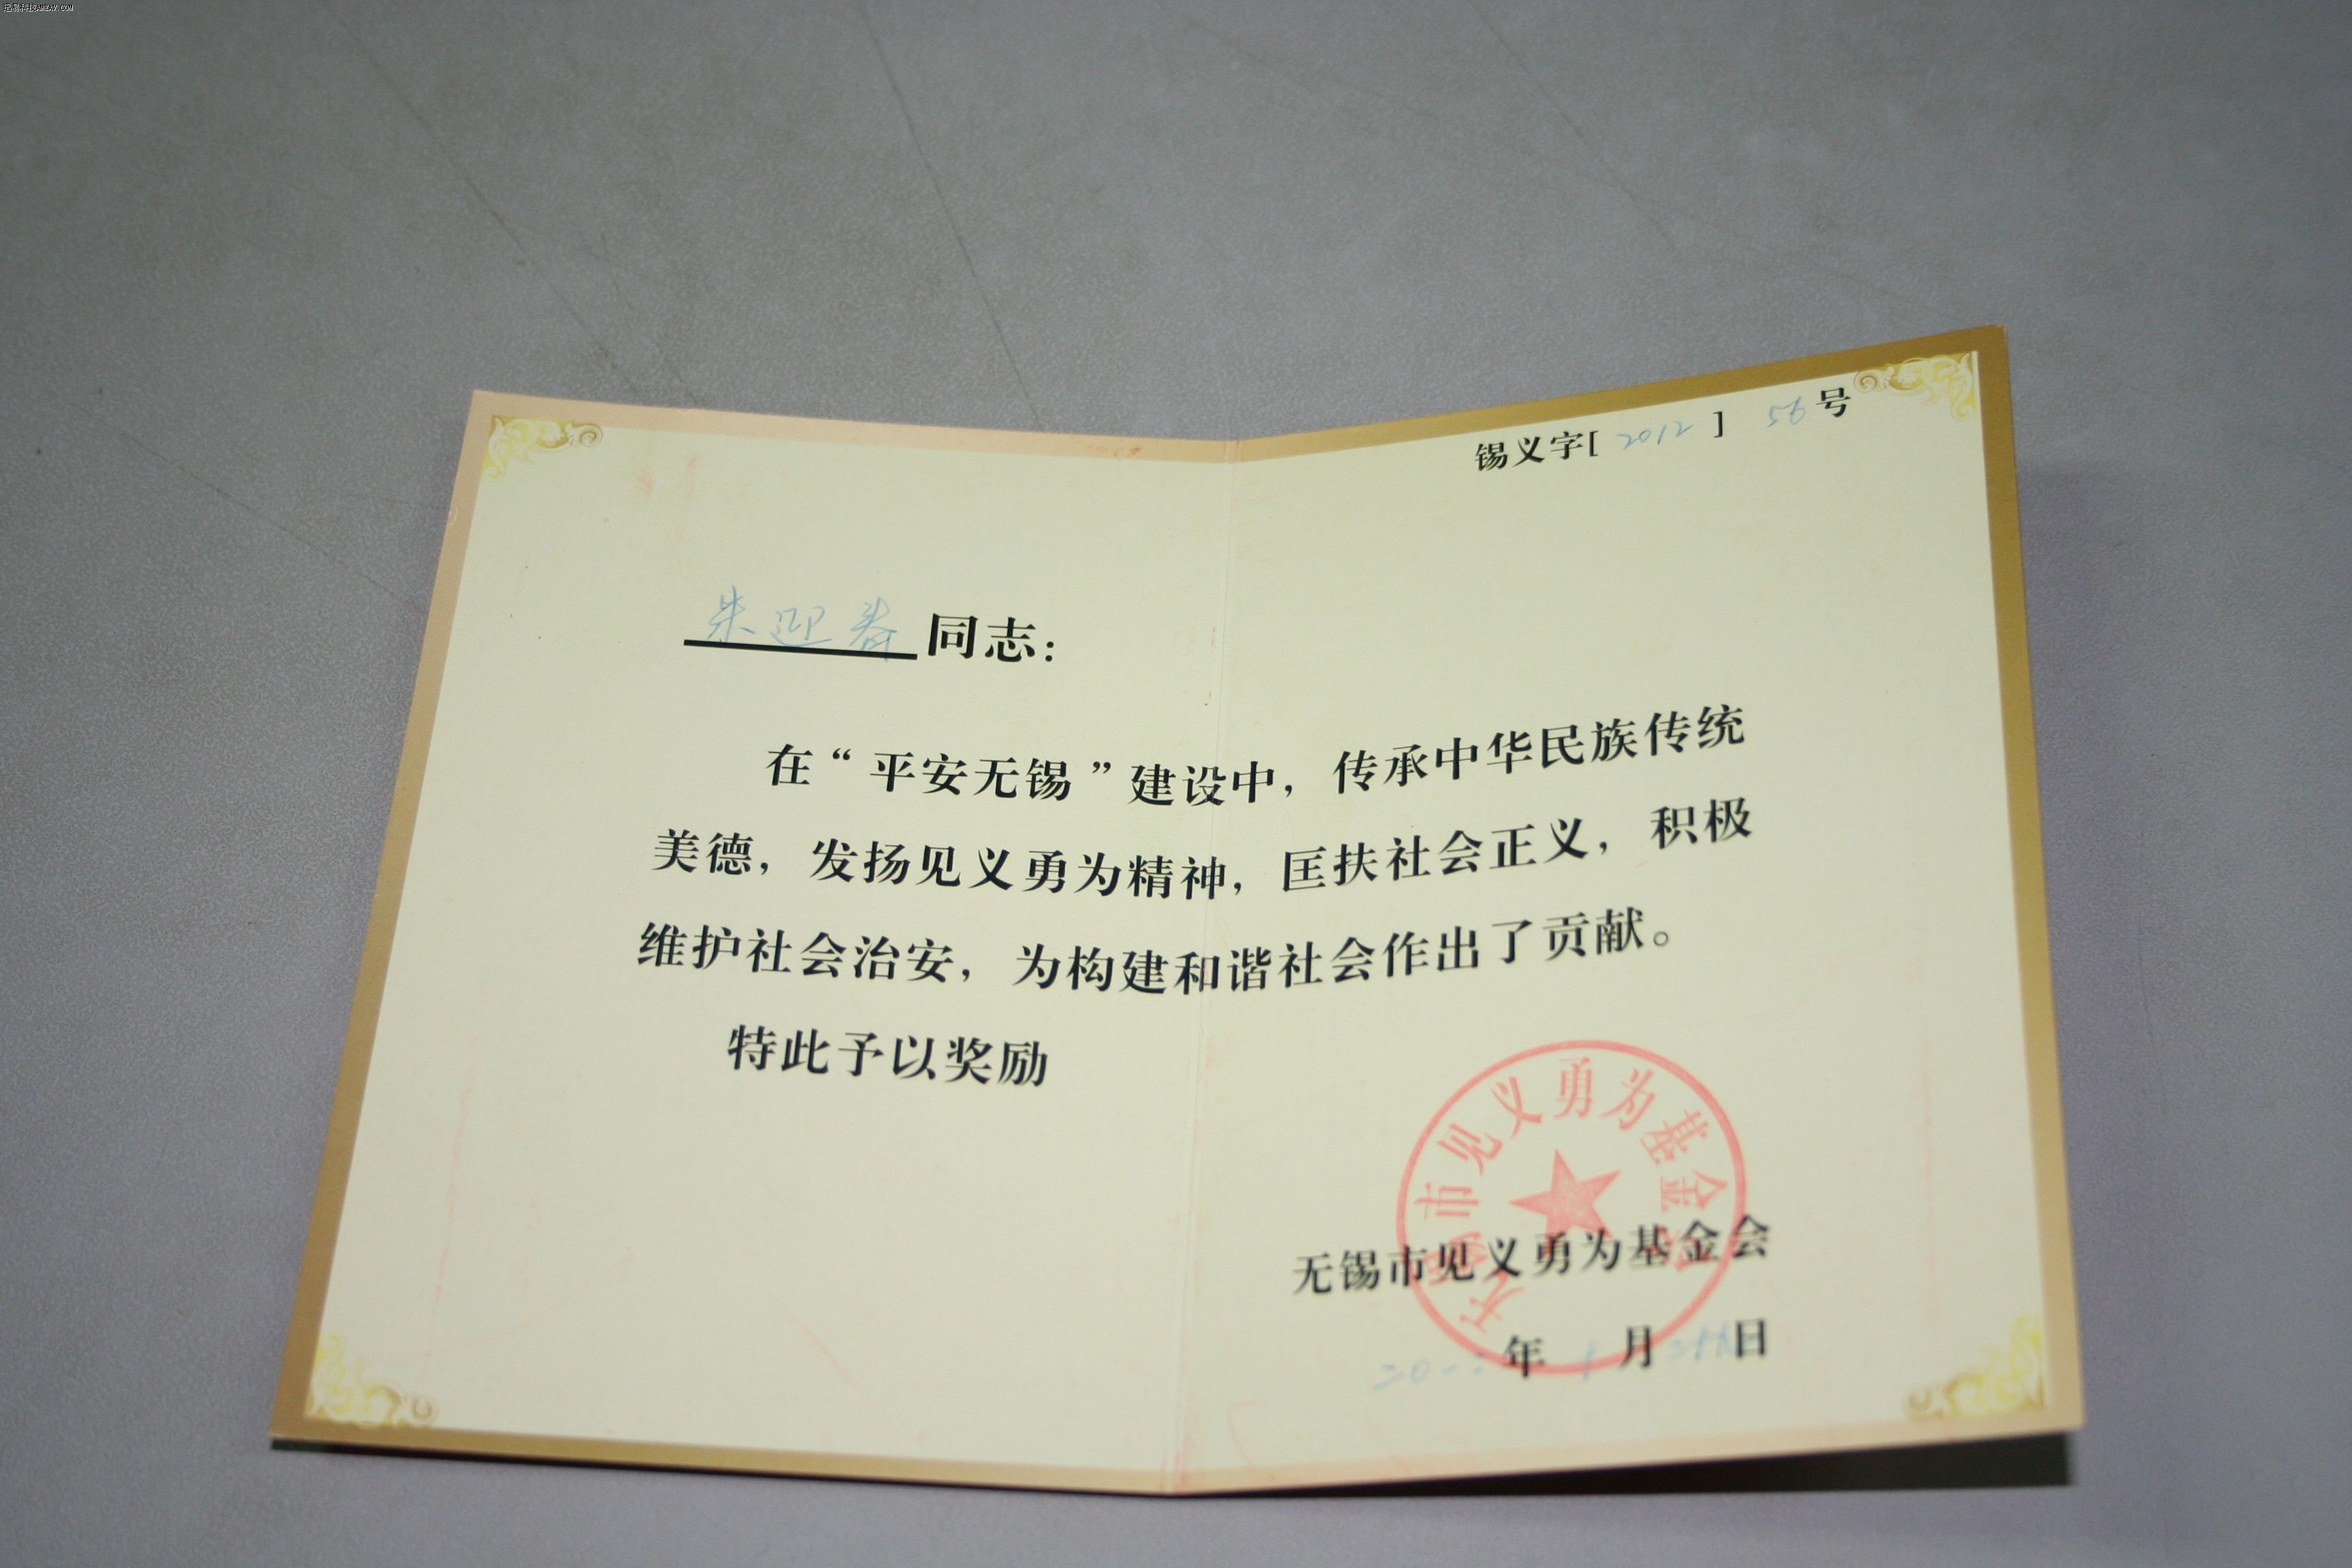 拓易科技AMEAV.COM
锡义字[ 2012 ] 号
朱迎春同志：
在“平安无锡”建设中，传承中华民族传统
美德，发扬见义勇为精神，匡扶社会正义，积极
维护社会治安，为构建和谐社会作出了贡献。
特此予以奖励
无锡市见义勇为基金会
无锡市见义勇为基金会
年 月 日